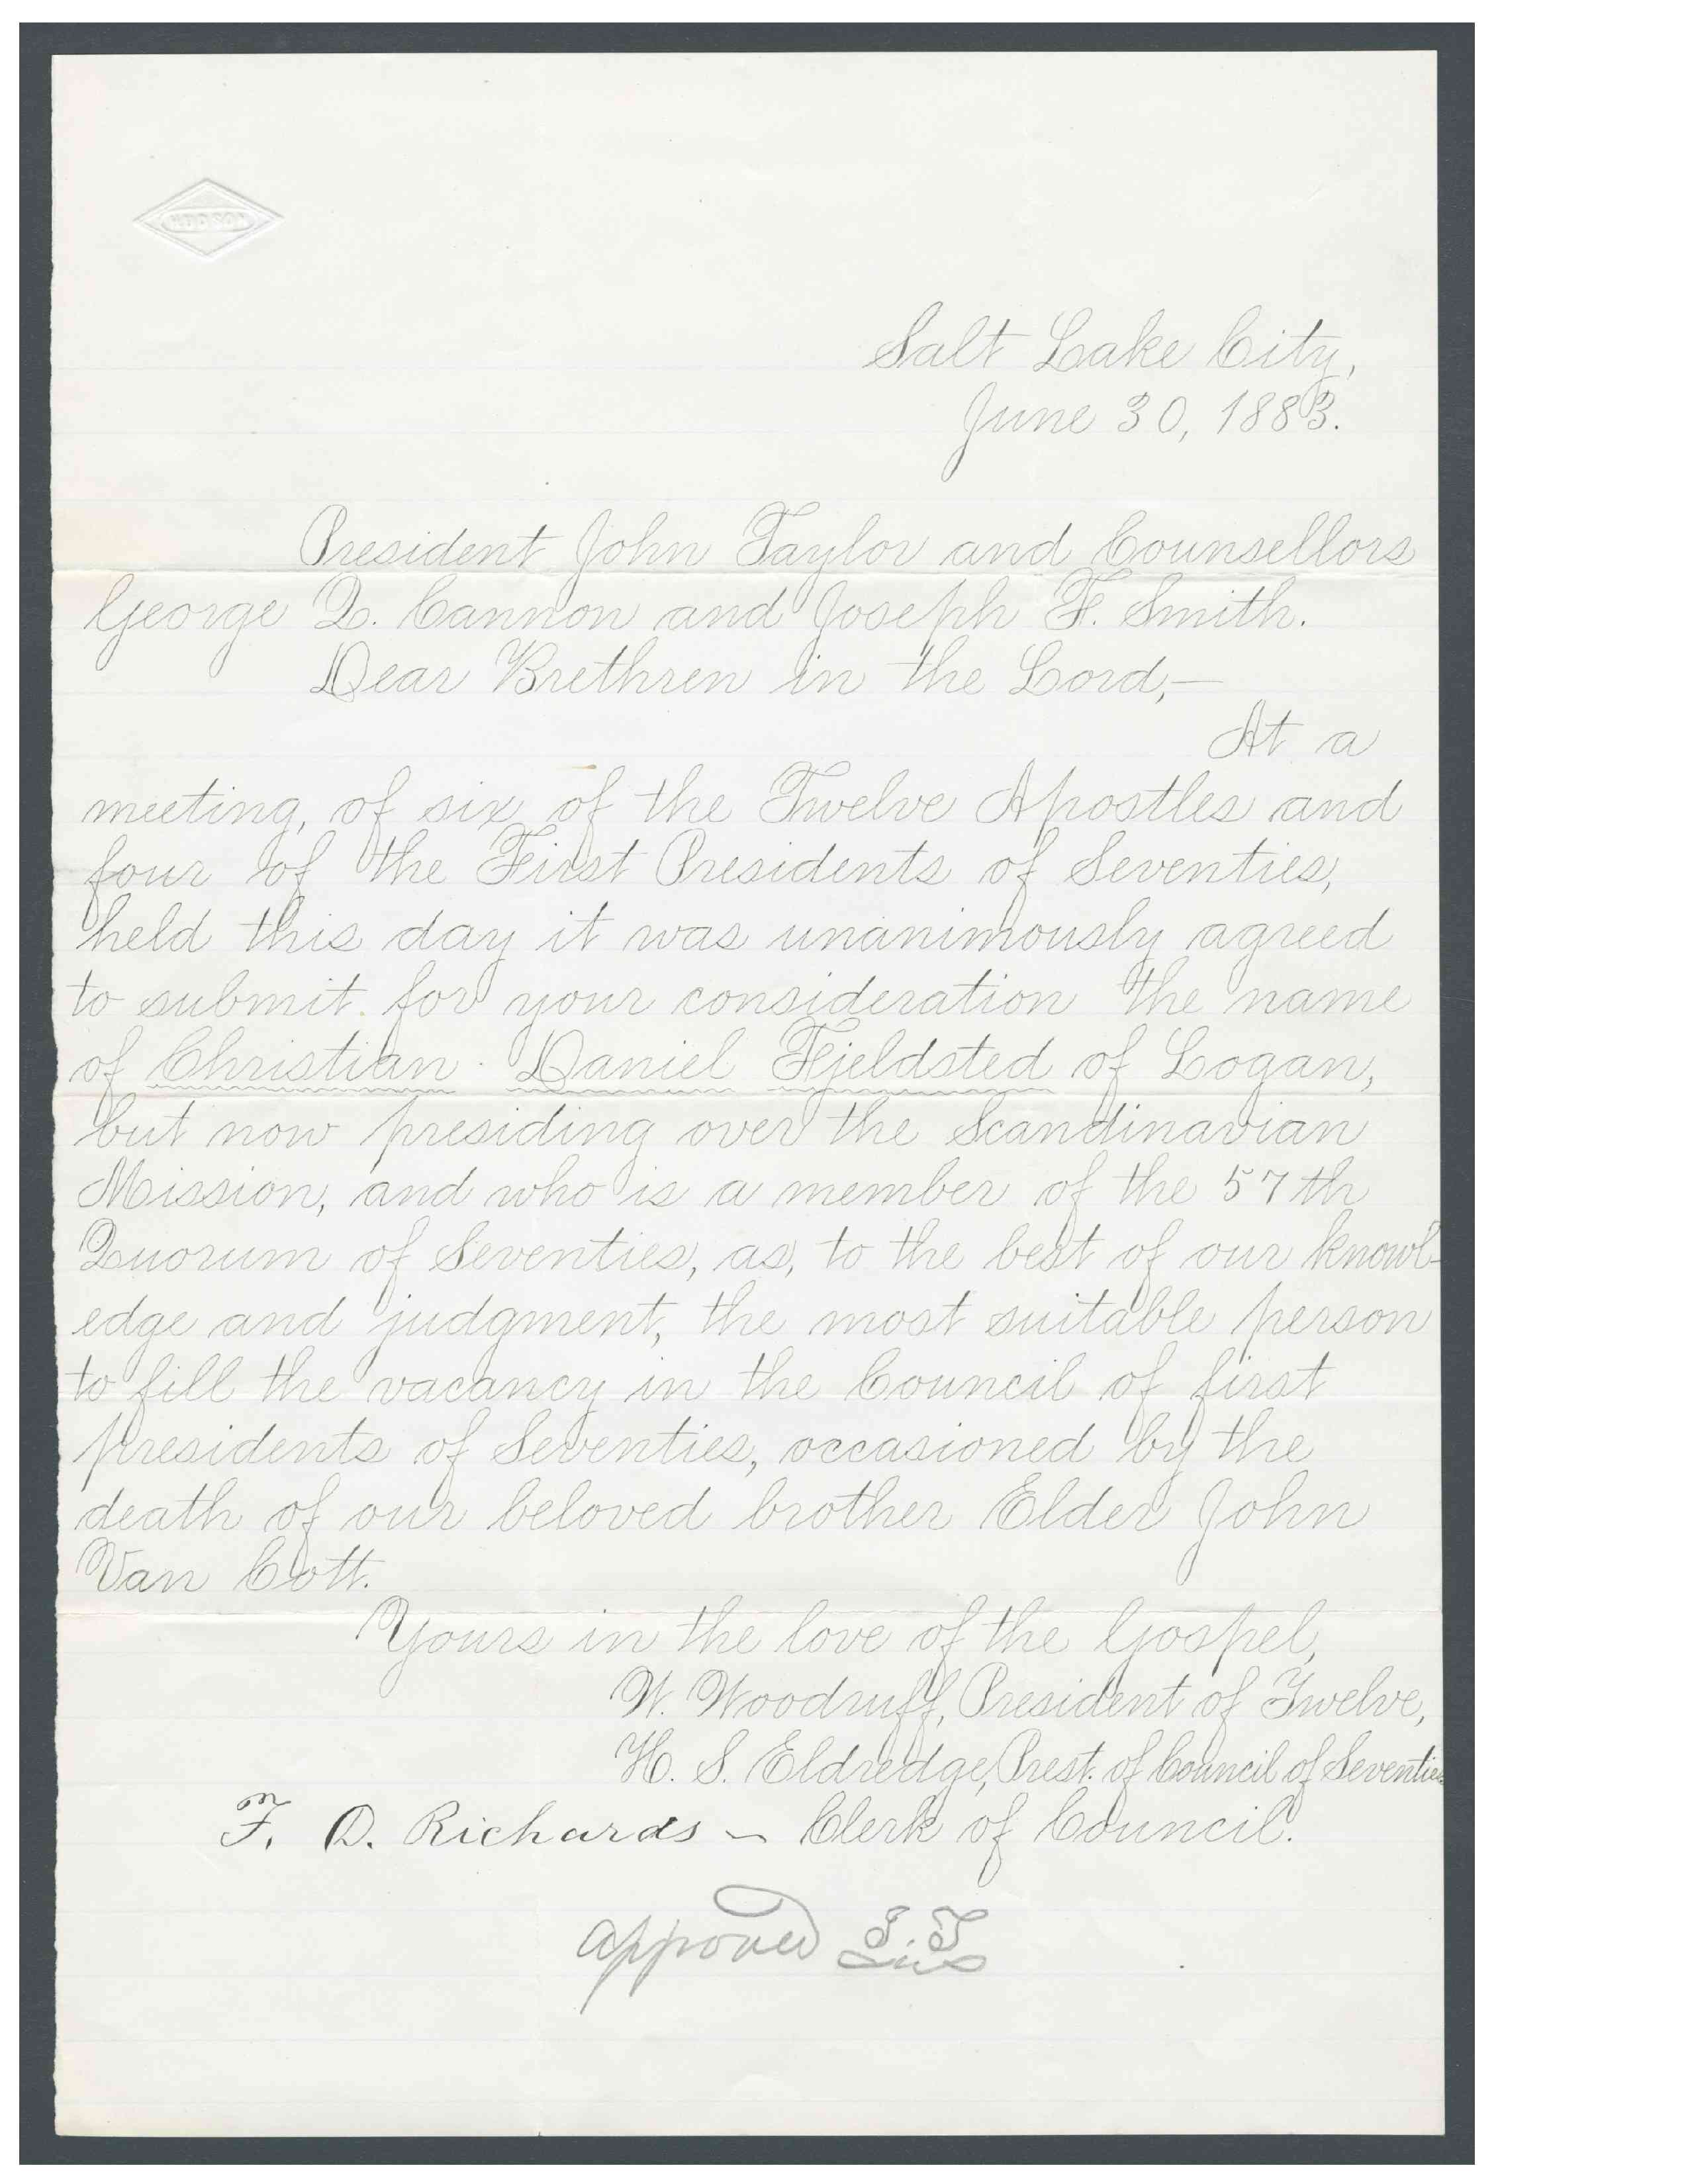 HUDSON
Salt Lake City,
June 30, 1883.
President John Taylor and Counsellors
George Q. Cannon and Joseph F. Smith.
Dear Brethren in the Lord,—
At a
meeting, of six of the Twelve Apostles and
four of the First Presidents of Seventies,
held this day it was unanimously agreed
to submit for your consideration the name
of Christian Daniel Fjeldsted of Logan,
but now presiding over the Scandinavian
Mission, and who is a member of the 57th
Quorum of Seventies, as, to the best of our knowl-
edge and judgment, the most suitable person
to fill the vacancy in the Council of first
presidents of Seventies, occasioned by the
death of our beloved brother Elder John
Van Cott.
Yours in the love of the Gospel,
W. Woodruff, President of Twelve,
H. S. Eldredge, Prest. of Council of Seventies
F. D. Richards — Clerk of Council.
approved J. T